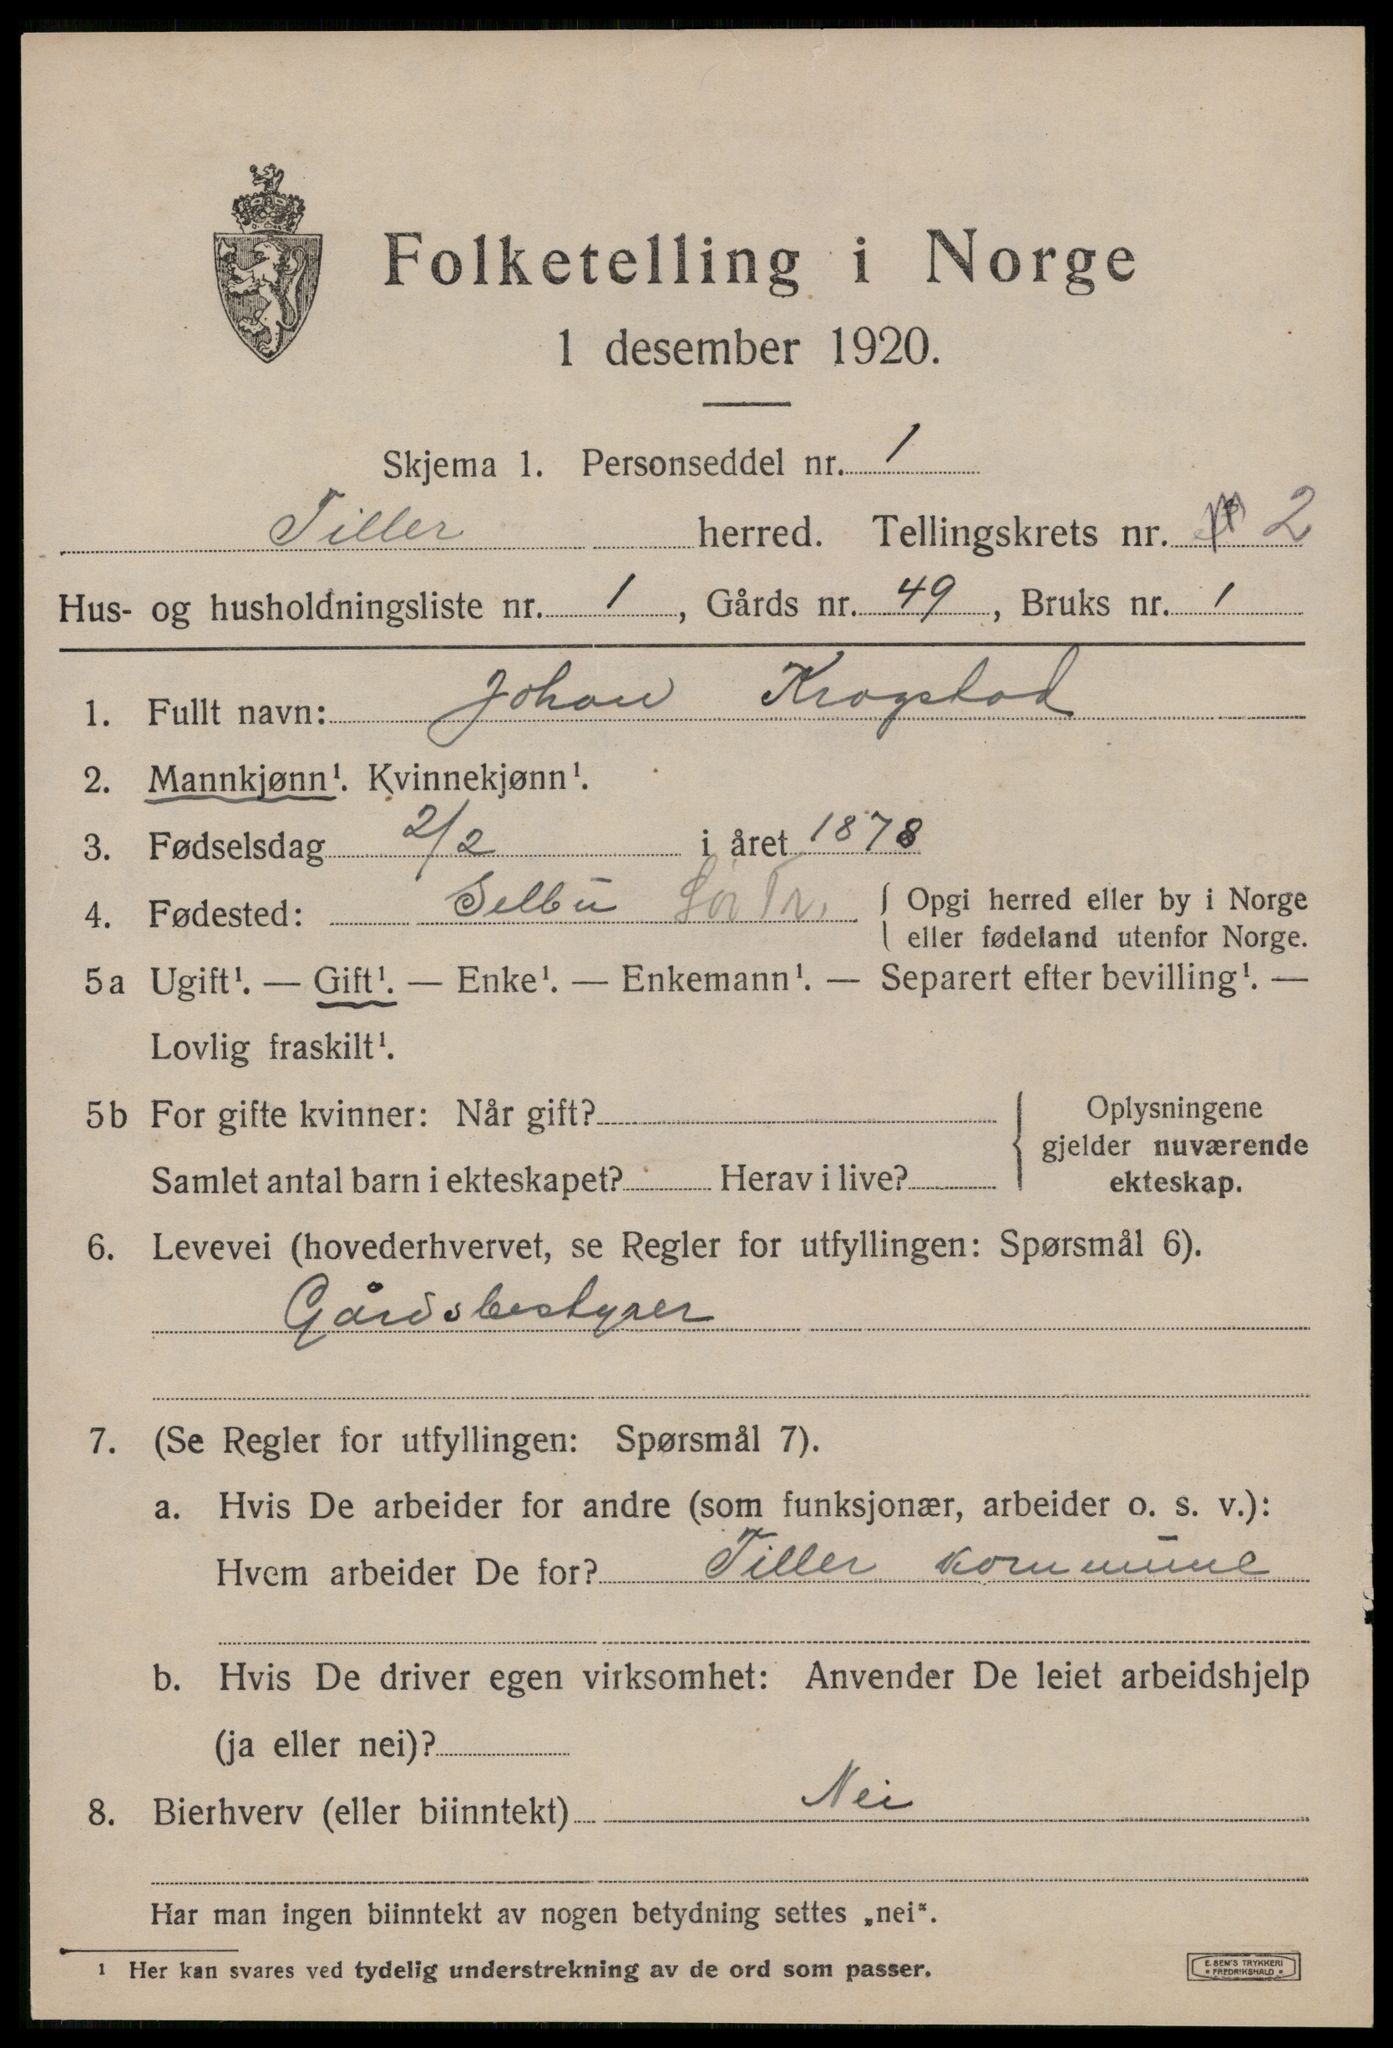 Folketelling i Norge
1 desember 1920.
Skjema 1. Personseddel nr. 1
Tiller herred. Tellingskrets nr. 2
Hus- og husholdningsliste nr. 1, Gårds nr. 49, Bruks nr. 1
1. Fullt navn: Johan Krogstad
2. Mannkjønn¹. Kvinnekjønn¹.
3. Fødselsdag 2/2 i året 1878
4. Fødested: Selbu Sør Tr. { Opgi herred eller by i Norge
eller fødeland utenfor Norge.
5a Ugift¹. — Gift¹. — Enke¹. — Enkemann¹. — Separert efter bevilling¹. —
Lovlig fraskilt¹.
5b For gifte kvinner: Når gift? { Oplysningene
gjelder nuværende
Samlet antal barn i ekteskapet? Herav i live? ekteskap.
6. Levevei (hovederhvervet, se Regler for utfyllingen: Spørsmål 6).
Gårdsbestyrer
7. (Se Regler for utfyllingen: Spørsmål 7).
a. Hvis De arbeider for andre (som funksjonær, arbeider o. s. v.):
Hvem arbeider De for? Tiller kommune
b. Hvis De driver egen virksomhet: Anvender De leiet arbeidshjelp
(ja eller nei)?
8. Bierhverv (eller biinntekt) Nei
Har man ingen biinntekt av nogen betydning settes „nei“.
¹ Her kan svares ved tydelig understrekning av de ord som passer.
E. SEM'S TRYKKERI
• FREDRIKSHALD •